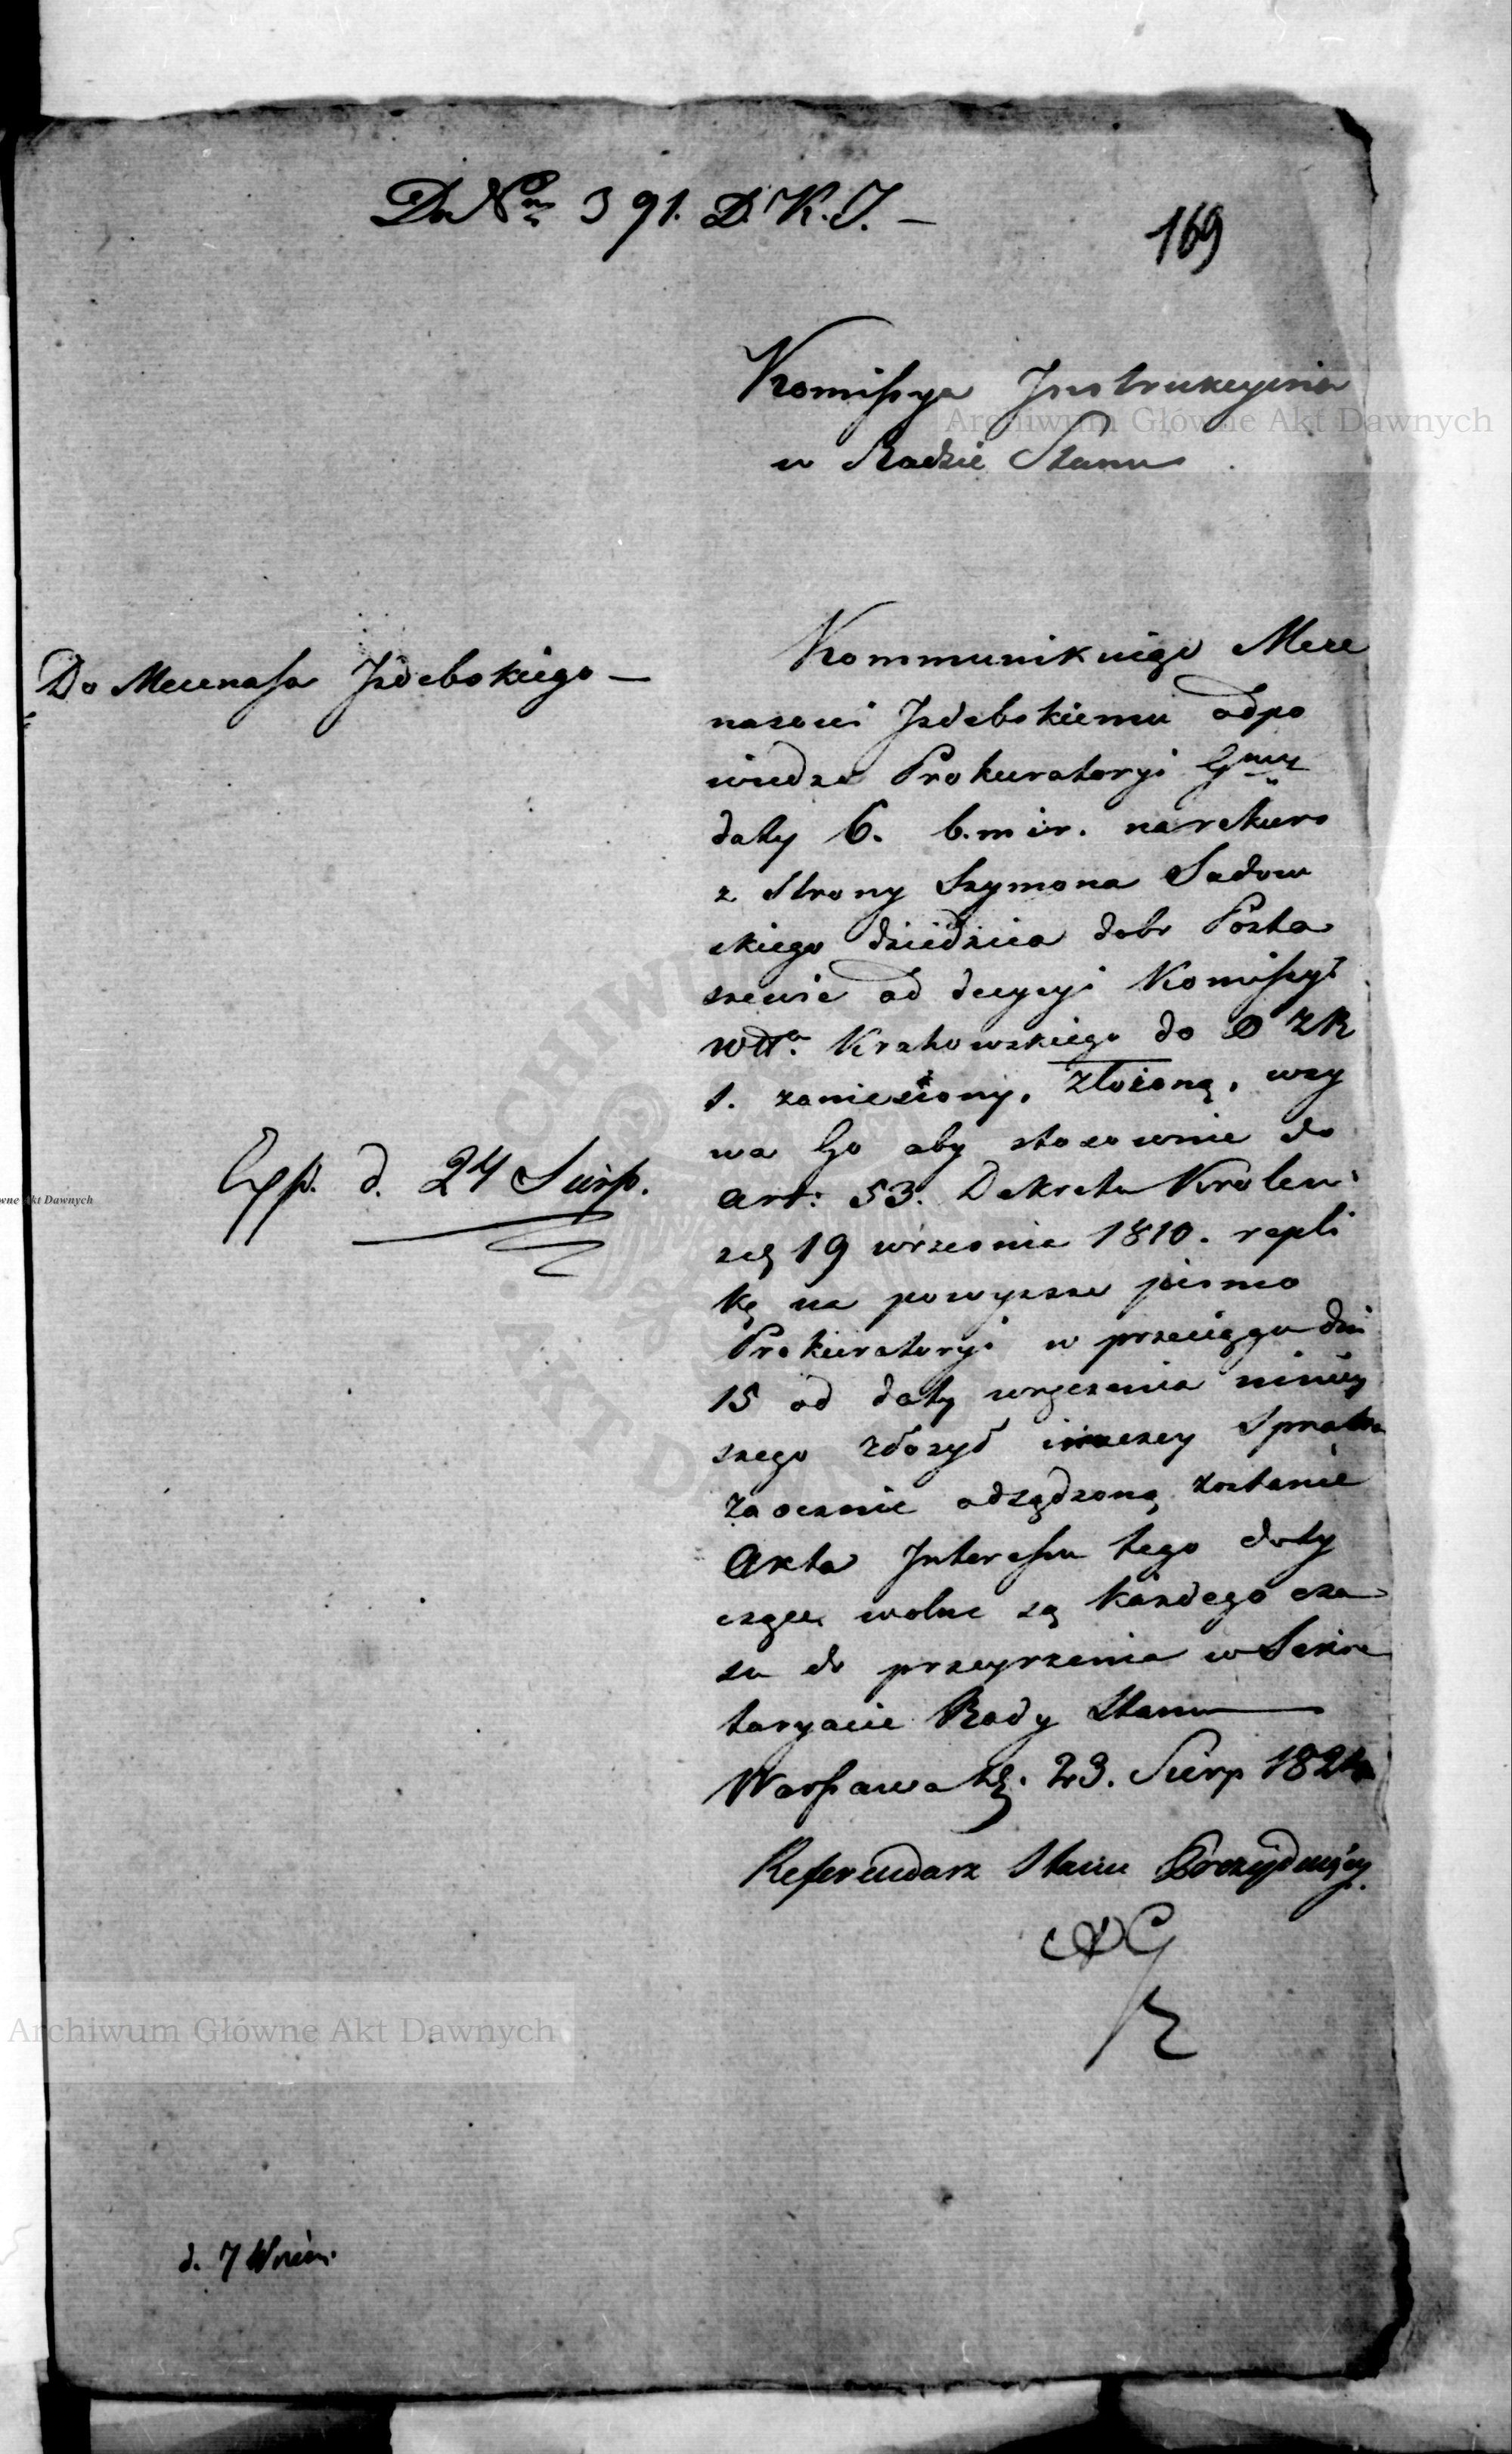 Do Nru 391. D. K. I. —
169
Komissya Instrukcyina
w Radzie Stanu
Do Mecenasa Izdebskiego —
Kommunikuiąc Mece
nasowi Izdebskiemu odpo
wiedź Prokuratoryi Gnley
daty 6. b. m i r. na rekurs
z strony Szymona Sadow
skiego dziedzica dobr Posta
szewic od decyzyi Komissyi
Wdta. Krakowskiego do
s. zaniesiony, złożoną, wzy
wa Go aby stosownie do
Art: 53. Dekretu Krolew
z d. 19 września 1810. repli
kę na powyższe pismo
Prokuratoryi w przeciągu dni
15 od daty wręczenia niniey
szego złożył inaczey Sprawa
zaocznie odsądzoną zostanie
Akta Interessu tego doty
czące wolne są każdego cza
su do przeyrzenia w Sekre
taryacie Rady Stanu
Warszawa d. 23. Sierp 1824
Referendarz Stanu Prezyduiący.
Exp. d. 24 Sierp.
d. 7 Wrześn.
Archiwum Główne Akt Dawnych
Archiwum Główne Akt Dawnych